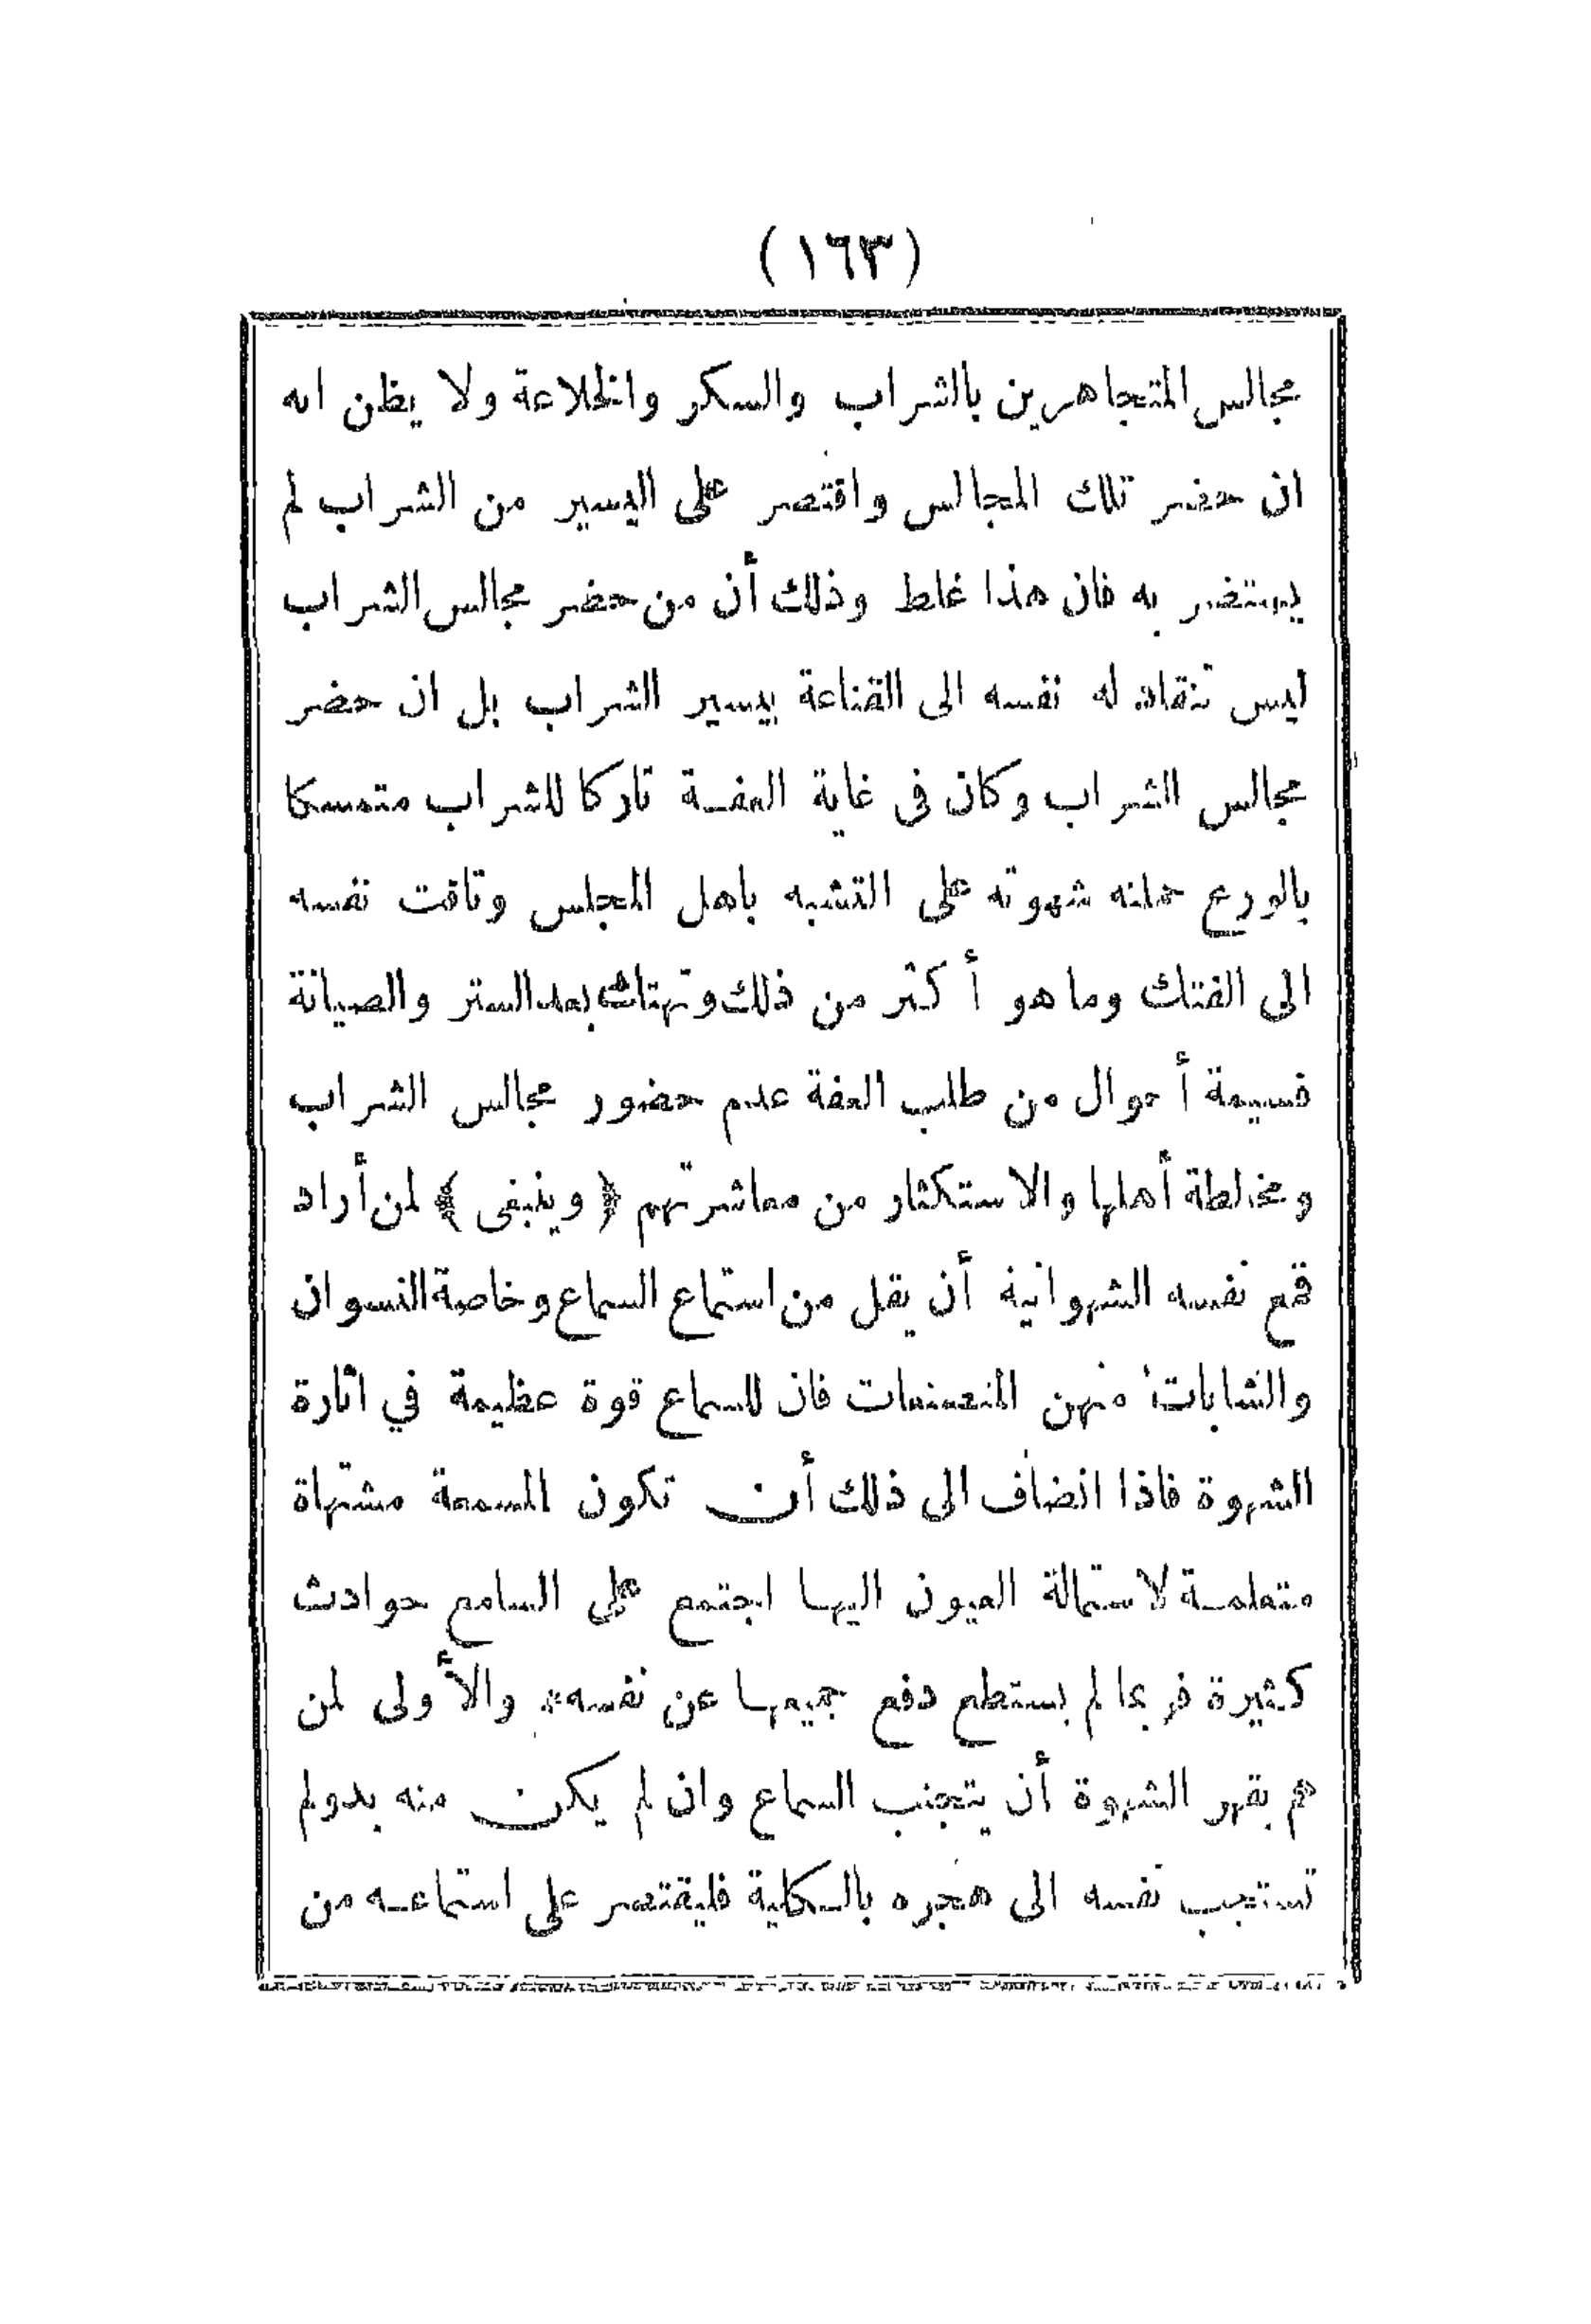 (١٦٣)
مجالس المتجاهرين بالشراب والسكر والخلاعة ولا يظن انه
ان حضر تلك المجالس واقتصر على اليسير من الشراب لم
يستضر به فان هذا غلط وذلك أن من حضر مجالس الشراب
ليس تنقاد له نفسه الى القناعة بيسير الشراب بل ان حضر
مجالس الشراب وكان فى غاية العفة تاركا للشراب متمسكا
بالورع حملته شهوته على التشبه باهل المجلس وتاقت نفسه
الى الفتك وما هو أكثر من ذلك وتهتك بعد الستر والصيانة
فسيمة أحوال من طلب العفة عدم حضور مجالس الشراب
ومخالطة أهلها والاستكثار من معاشرتهم ﴿ وينبغى ﴾ لمن أراد
قمع نفسه الشهوانية أن يقل من استماع السماع وخاصة النسوان
والشابات منهن المتصنعات فان للسماع قوة عظيمة في اثارة
الشهوة فاذا انضاف الى ذلك أن تكون المسمعة مشتهاة
متعلمة لاستمالة العيون اليها اجتمع على السامع حوادث
كثيرة فربما لم يستطع دفع جميعها عن نفسه* والأولى لمن
هم بقهر الشهوة أن يتجنب السماع وان لم يكن منه بدولم
تستجب نفسه الى هجره بالكلية فليقتصر على استماعه من